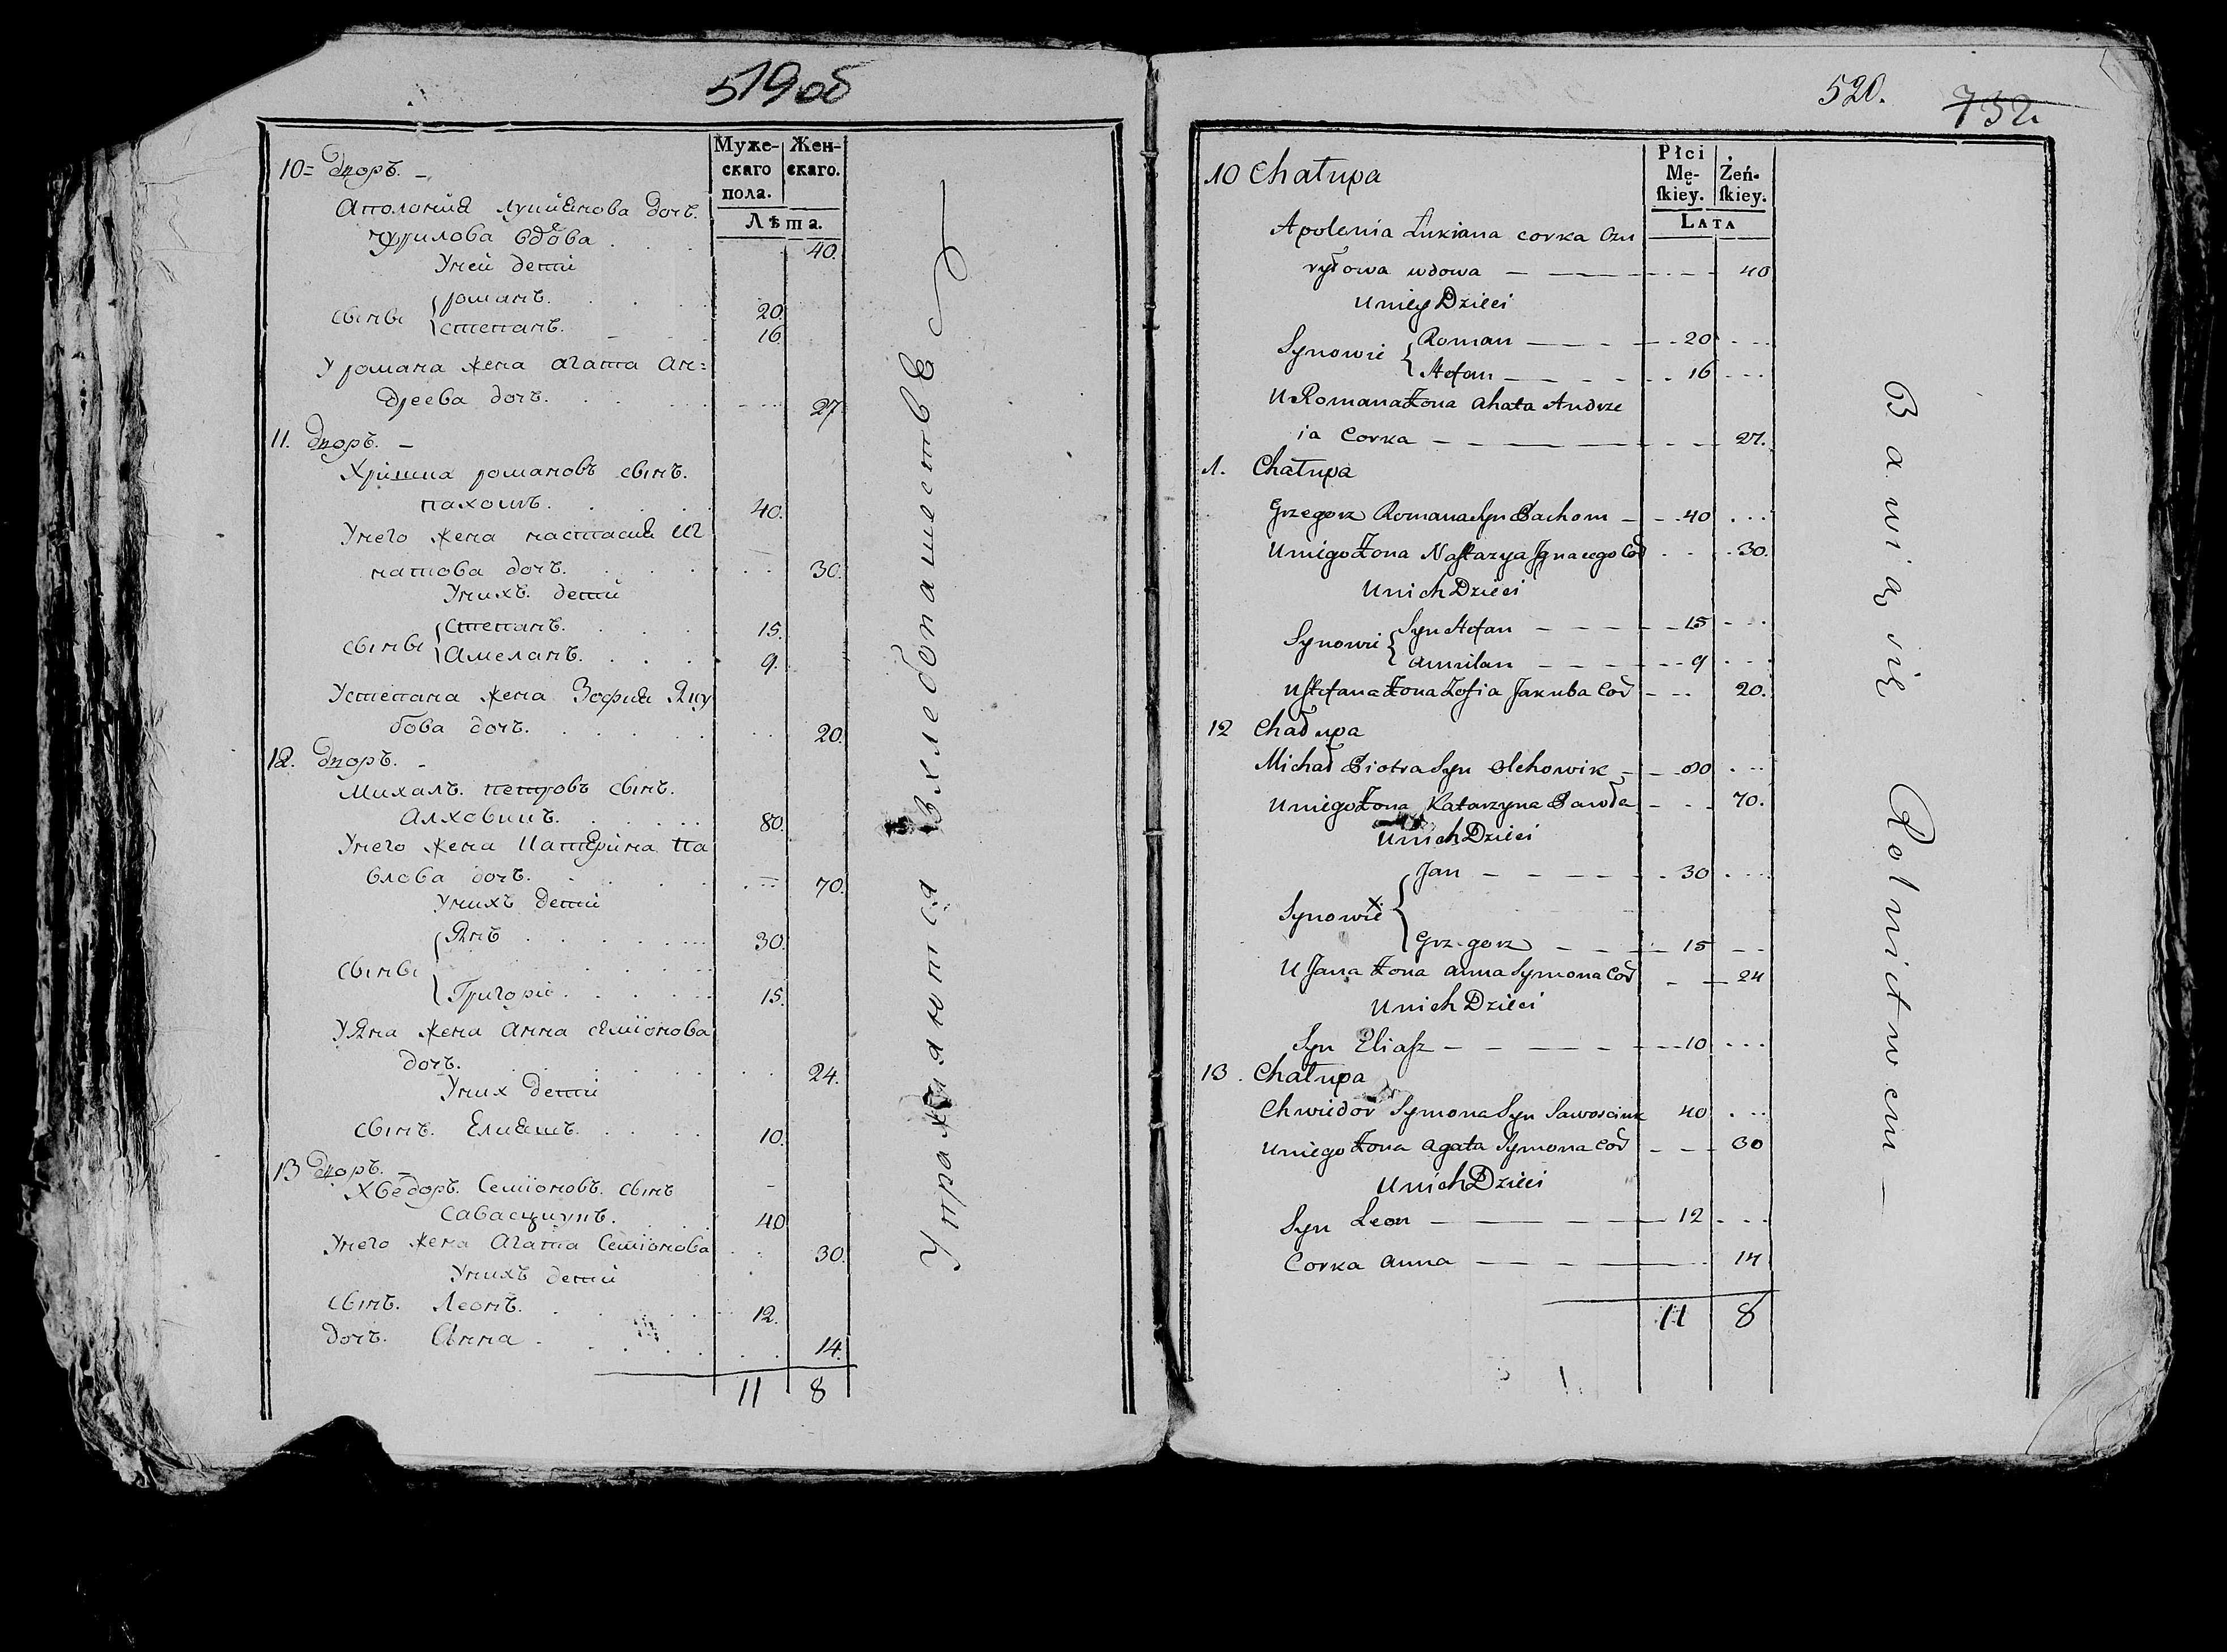 519 об
Муже-
скаго
пола.
Жен-
скаго.
Лѣта.
10= Дворъ.
Аполонія Лукіянова дочь.
вдова 40.
У ней дѣти
сыны
Романъ. 20.
Степанъ. 16.
У Романа жена Агата Ан=
дреева дочь. 27.
11. Дворъ.
Хришка Романовъ сынъ.
Пахомъ. 40.
У него жена Настасия Иг
натова дочь. 30.
У нихъ дети
сыны
Степанъ. 15.
Амеланъ. 9.
У Степана жена Зофия Яку
бова дочь. 20.
12. Дворъ.
Михалъ Петровъ сынъ.
Алховикъ. 80.
У него жена Катерина Па
влова дочь. 70.
У нихъ дети
сыны
Янъ 30.
Григорiй 15.
У Яна жена Анна Семiонова
дочь. 24.
У них дети
сынъ. Елияшъ. 10.
13 Дворъ.
Хведоръ. Семiоновъ. сынъ
40
У него жена Агата Семiонова 30.
У нихъ дети
сынъ. Леонъ. 12.
дочь. Анна 14.
11 8
Упражняются в хлебопашестве
520.
732.
Płci
Mę-
ſkiey.
Żeń-
ſkiey.
LATA
10 Chałupa
Apolenia Łukiana corka Czu
ryłowa wdowa 40
U niey Dzieci
Synowie
Roman 20
Stefan 16
U Romana Żona Ahata Andrze
ia Corka 27.
1. Chałupa
Grzegorz Romana Syn Pachom 40
U niego Żona Nastazya Jgnacego Coŕ 30.
U nich Dzieci
Synowie
Syn Stefan 15
Amilan 9
U Stefana Żona Zofia Jakuba Coŕ 20.
12 Chałupa
Michał Piotra Syn Olchowik 80
U niego Żona Katarzyna Pawła 70.
U nich Dzieci
Synowie
Jan 30
Grzegorz 15
U Jana Żona Anna Symona Coŕ 24
U nich Dzieci
Syn Eliaſz 10
13. Chałupa
Chwiedor Symona Syn Sawosciuk 40
U niego Żona Agata Symona Coŕ 30
U nich Dzieci
Syn Leon 12
Corka Anna 14
11 8
Bawią się Rolnictwem